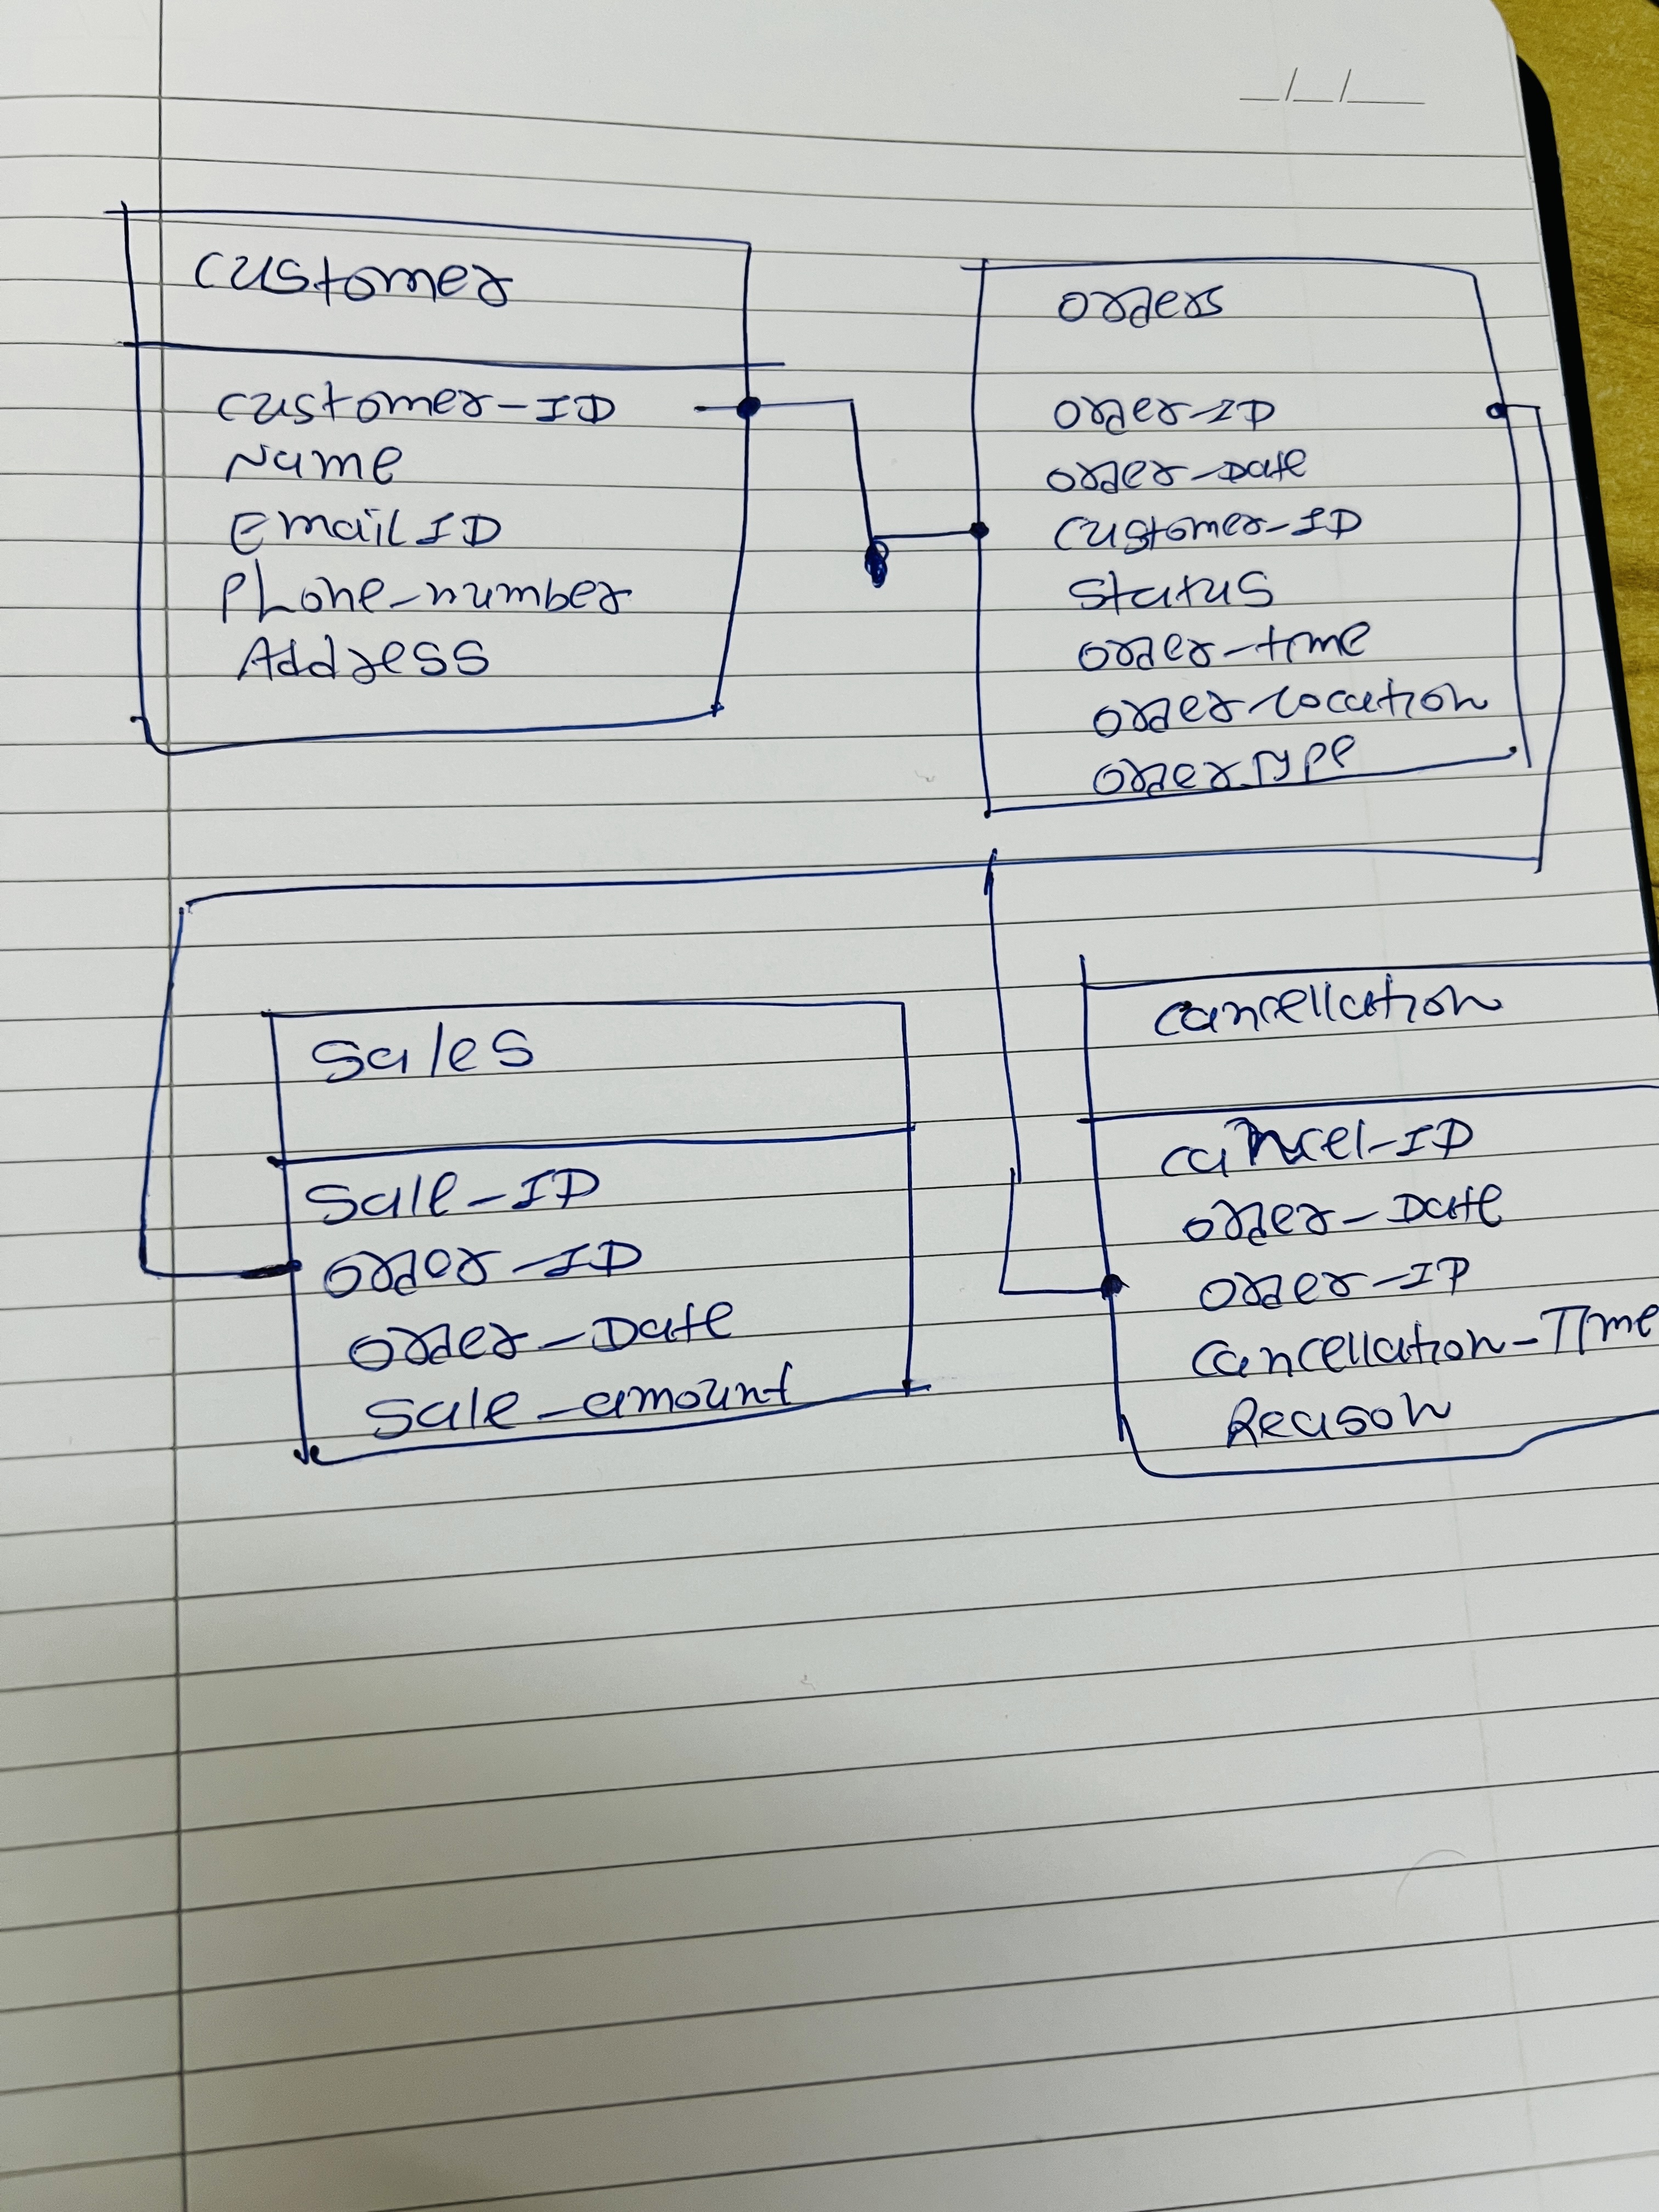 customer
customer-ID
Name
Email ID
Phone-number
Address
orders
order-ID
order-Date
customer-ID
Status
order-time
order-location
order Type
Sales
Sale-ID
order-ID
order-Date
Sale-amount
cancellation
cancel-ID
order-Date
order-ID
cancellation-Time
Reason